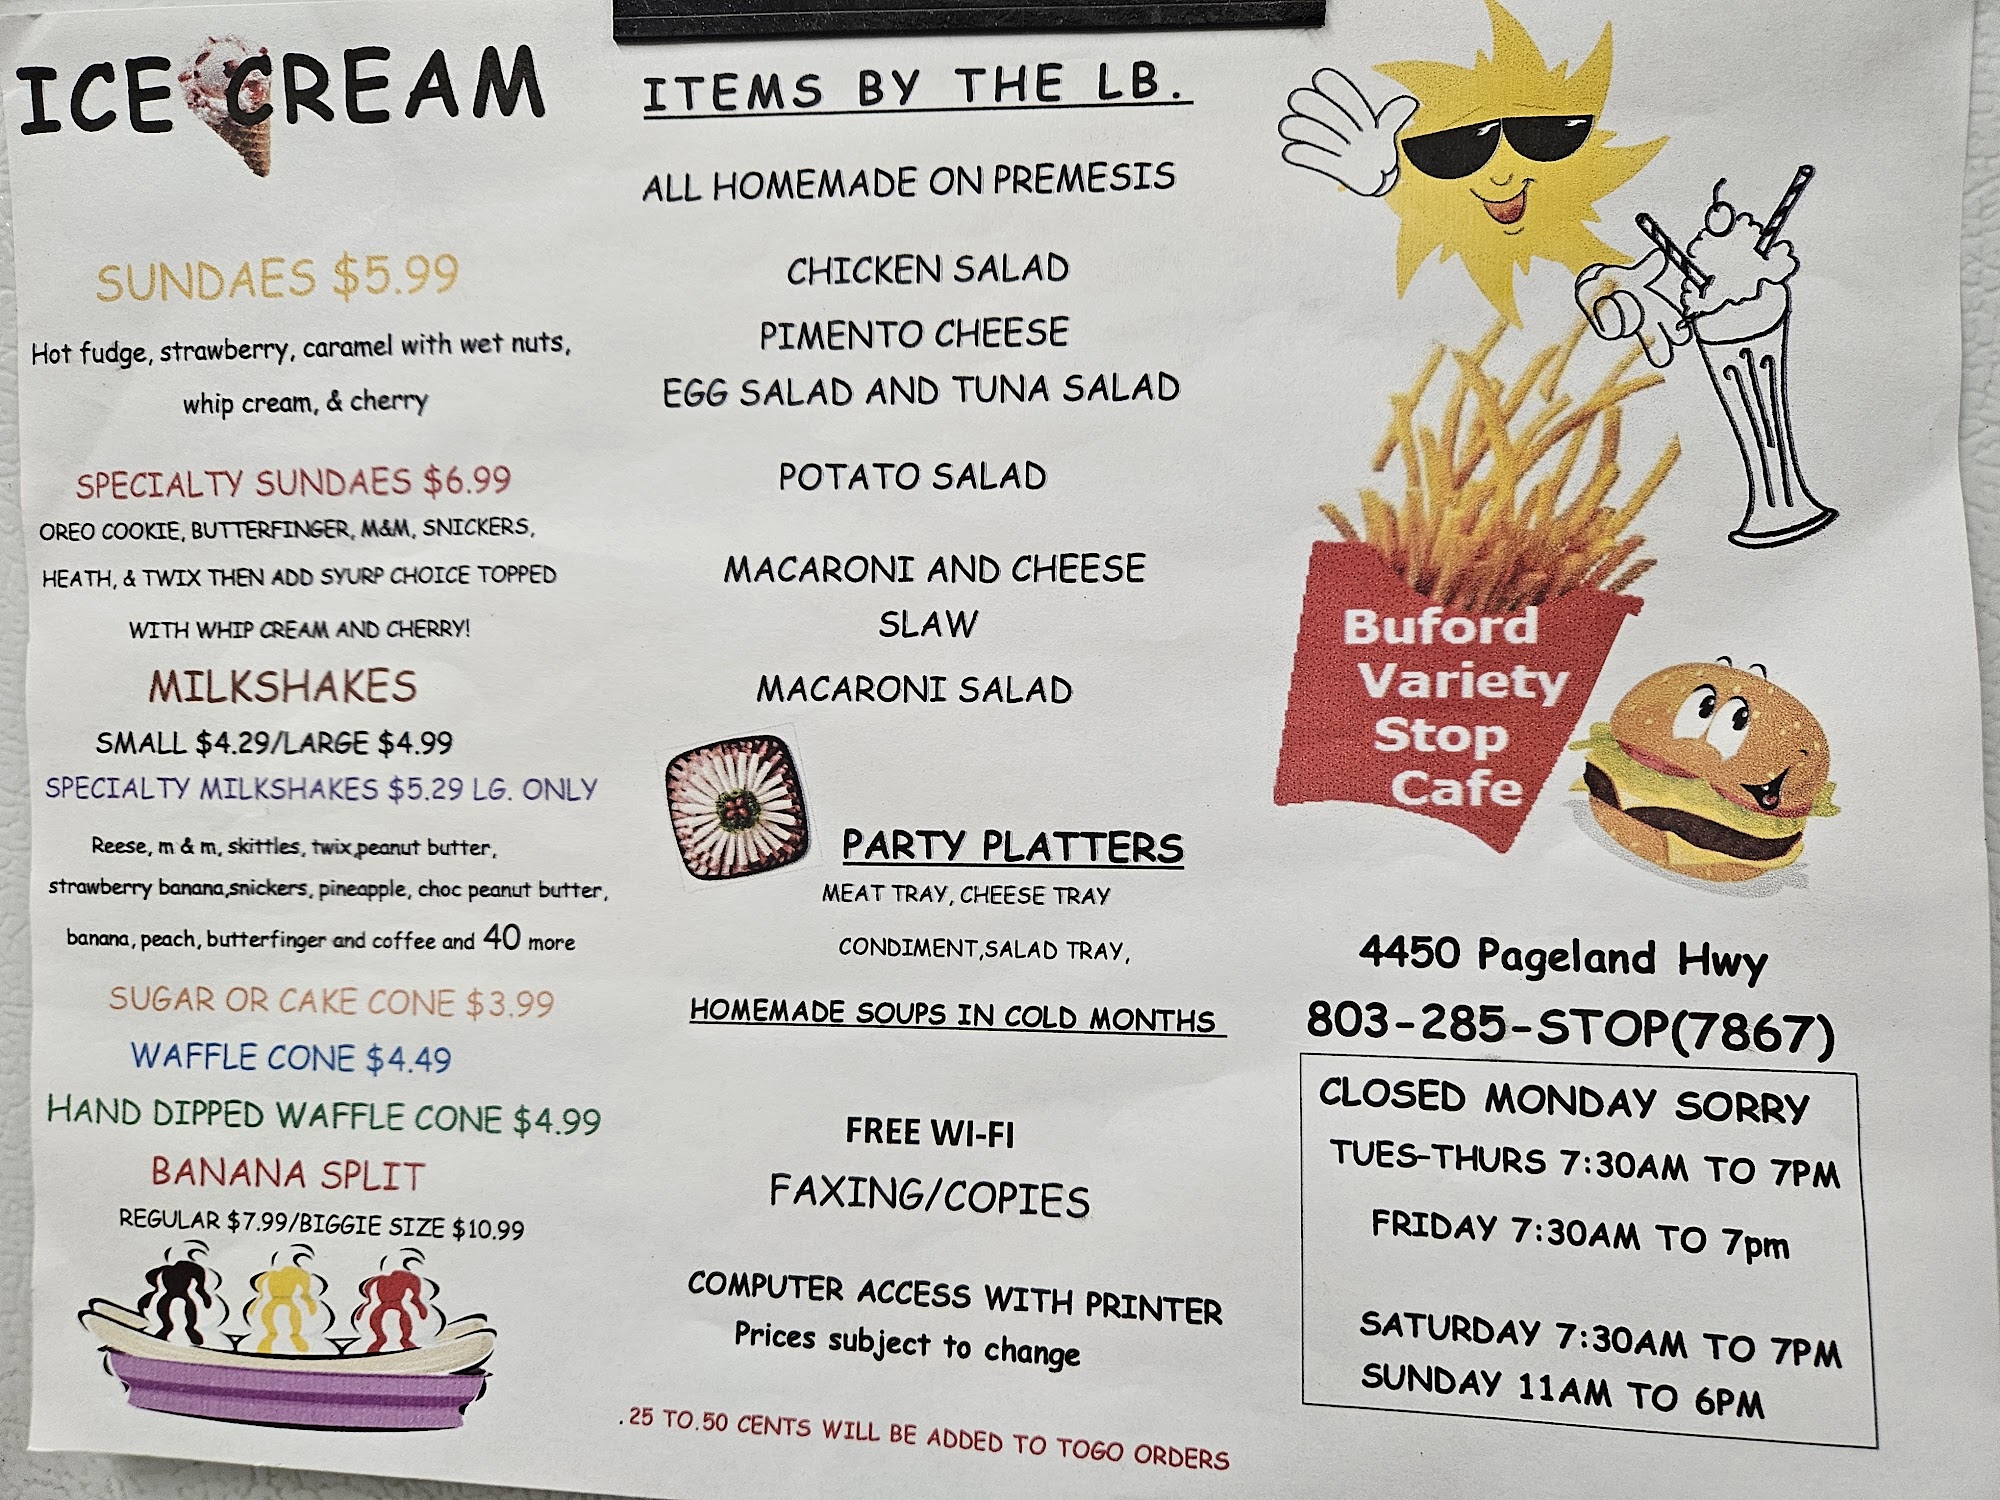 ICE CREAM
SUNDAES $5.99
Hot fudge, strawberry, caramel with wet nuts,
whip cream, & cherry
SPECIALTY SUNDAES $6.99
OREO COOKIE, BUTTERFINGER, M&M, SNICKERS,
HEATH, & TWIX THEN ADD SYURP CHOICE TOPPED
WITH WHIP CREAM AND CHERRY!
MILKSHAKES
SMALL $4.29/LARGE $4.99
SPECIALTY MILKSHAKES $5.29 LG. ONLY
Reese, m & m, skittles, twix,peanut butter,
strawberry banana,snickers, pineapple, choc peanut butter,
banana, peach, butterfinger and coffee and 40 more
SUGAR OR CAKE CONE $3.99
WAFFLE CONE $4.49
HAND DIPPED WAFFLE CONE $4.99
BANANA SPLIT
REGULAR $7.99/BIGGIE SIZE $10.99
ITEMS BY THE LB.
ALL HOMEMADE ON PREMESIS
CHICKEN SALAD
PIMENTO CHEESE
EGG SALAD AND TUNA SALAD
POTATO SALAD
MACARONI AND CHEESE
SLAW
MACARONI SALAD
PARTY PLATTERS
MEAT TRAY, CHEESE TRAY
CONDIMENT,SALAD TRAY,
HOMEMADE SOUPS IN COLD MONTHS
FREE WI-FI
FAXING/COPIES
COMPUTER ACCESS WITH PRINTER
Prices subject to change
.25 TO.50 CENTS WILL BE ADDED TO TOGO ORDERS
Buford
Variety
Stop
Cafe
4450 Pageland Hwy
803-285-STOP(7867)
CLOSED MONDAY SORRY
TUES-THURS 7:30AM TO 7PM
FRIDAY 7:30AM TO 7pm
SATURDAY 7:30AM TO 7PM
SUNDAY 11AM TO 6PM